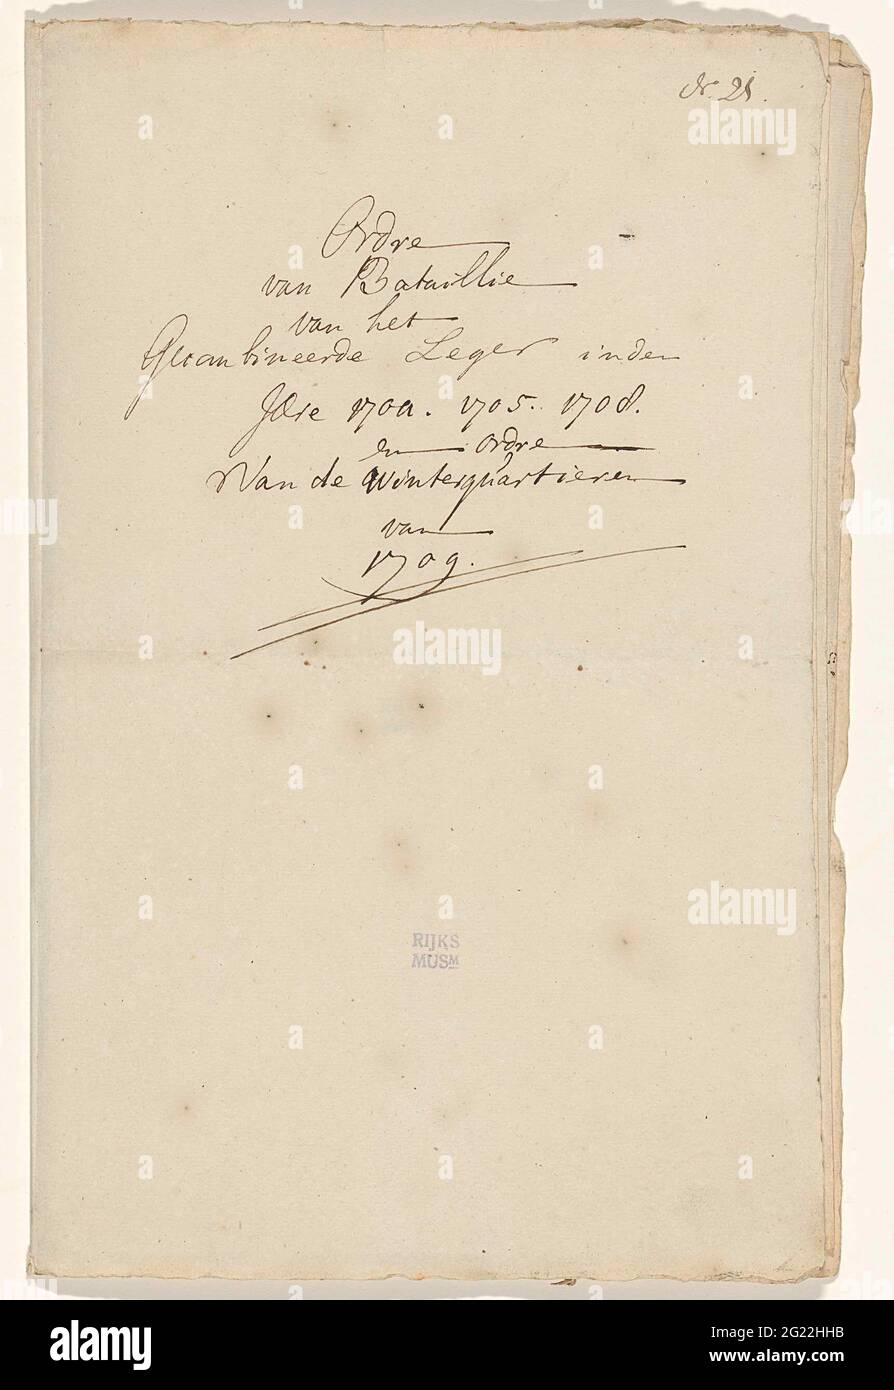 No. 21.
Ordre
van Bataillie
van het
Gecombineerde Leger inden
Jare 1700. 1705. 1708.
en ordre
Van de Winterquartieren
van
1709.
RIJKS
MUSM
alamy
Image ID: 2G22HHB
www.alamy.com